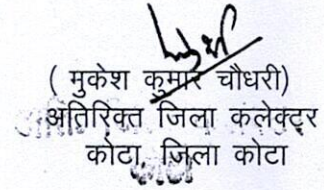 ( मुकेश कुमार चौधरी)
अतिरिक्त जिला कलेक्टर
कोटा, जिला कोटा